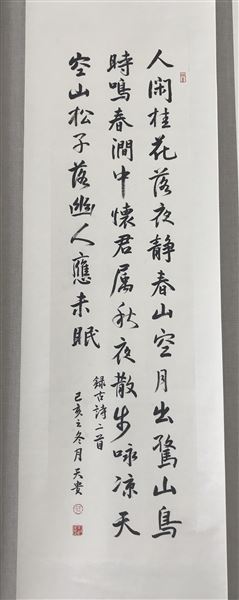 人閑桂花落夜靜春山空月出驁山鳥
時鳴春澗中懷君屬秋夜散步咏凉天
空山松子落幽人應未眠
録古詩二首
己亥之冬月天贵